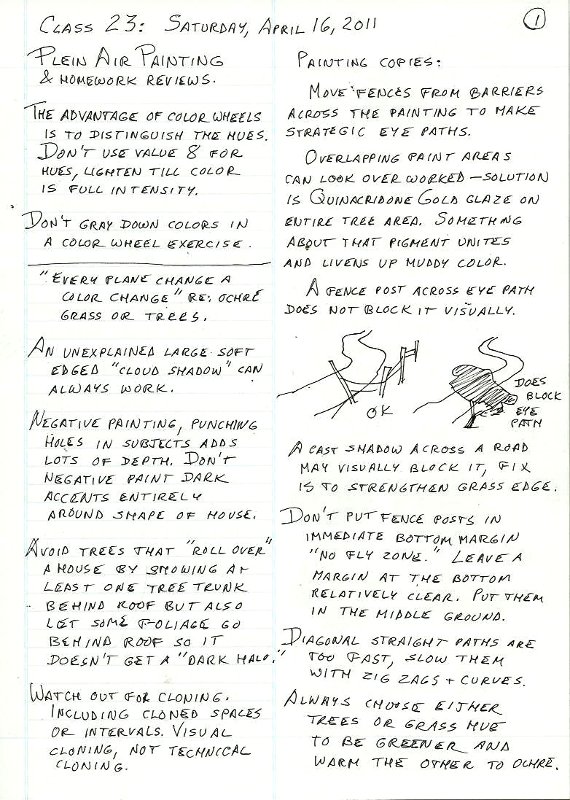 CLASS 23: SATURDAY, APRIL 16, 2011
1
PLEIN AIR PAINTING
& HOMEWORK REVIEWS.
THE ADVANTAGE OF COLOR WHEELS
IS TO DISTINGUISH THE HUES.
DON'T USE VALUE 8 FOR
HUES, LIGHTEN TILL COLOR
IS FULL INTENSITY.
DON'T GRAY DOWN COLORS IN
A COLOR WHEEL EXERCISE.
"EVERY PLANE CHANGE A
COLOR CHANGE" RE: OCHRE
GRASS OR TREES.
AN UNEXPLAINED LARGE SOFT
EDGED "CLOUD SHADOW" CAN
ALWAYS WORK.
NEGATIVE PAINTING, PUNCHING
HOLES IN SUBJECTS ADDS
LOTS OF DEPTH. DON'T
NEGATIVE PAINT DARK
ACCENTS ENTIRELY
AROUND SHAPE OF HOUSE.
AVOID TREES THAT "ROLL OVER"
A HOUSE BY SHOWING AT
LEAST ONE TREE TRUNK
BEHIND ROOF BUT ALSO
LET SOME FOLIAGE GO
BEHIND ROOF SO IT
DOESN'T GET A "DARK HALO."
WATCH OUT FOR CLONING.
INCLUDING CLONED SPACES
OR INTERVALS. VISUAL
CLONING, NOT TECHNICAL
CLONING.
PAINTING COPIES:
MOVE FENCES FROM BARRIERS
ACROSS THE PAINTING TO MAKE
STRATEGIC EYE PATHS.
OVERLAPPING PAINT AREAS
CAN LOOK OVER WORKED – SOLUTION
IS QUINACRIDONE GOLD GLAZE ON
ENTIRE TREE AREA. SOMETHING
ABOUT THAT PIGMENT UNITES
AND LIVENS UP MUDDY COLOR.
A FENCE POST ACROSS EYE PATH
DOES NOT BLOCK IT VISUALLY.
OK
DOES
BLOCK
EYE
PATH
A CAST SHADOW ACROSS A ROAD
MAY VISUALLY BLOCK IT, FIX
IS TO STRENGTHEN GRASS EDGE.
DON'T PUT FENCE POSTS IN
IMMEDIATE BOTTOM MARGIN
"NO FLY ZONE." LEAVE A
MARGIN AT THE BOTTOM
RELATIVELY CLEAR. PUT THEM
IN THE MIDDLE GROUND.
DIAGONAL STRAIGHT PATHS ARE
TOO FAST, SLOW THEM
WITH ZIG ZAGS + CURVES.
ALWAYS CHOOSE EITHER
TREES OR GRASS HUE
TO BE GREENER AND
WARM THE OTHER TO OCHRE.